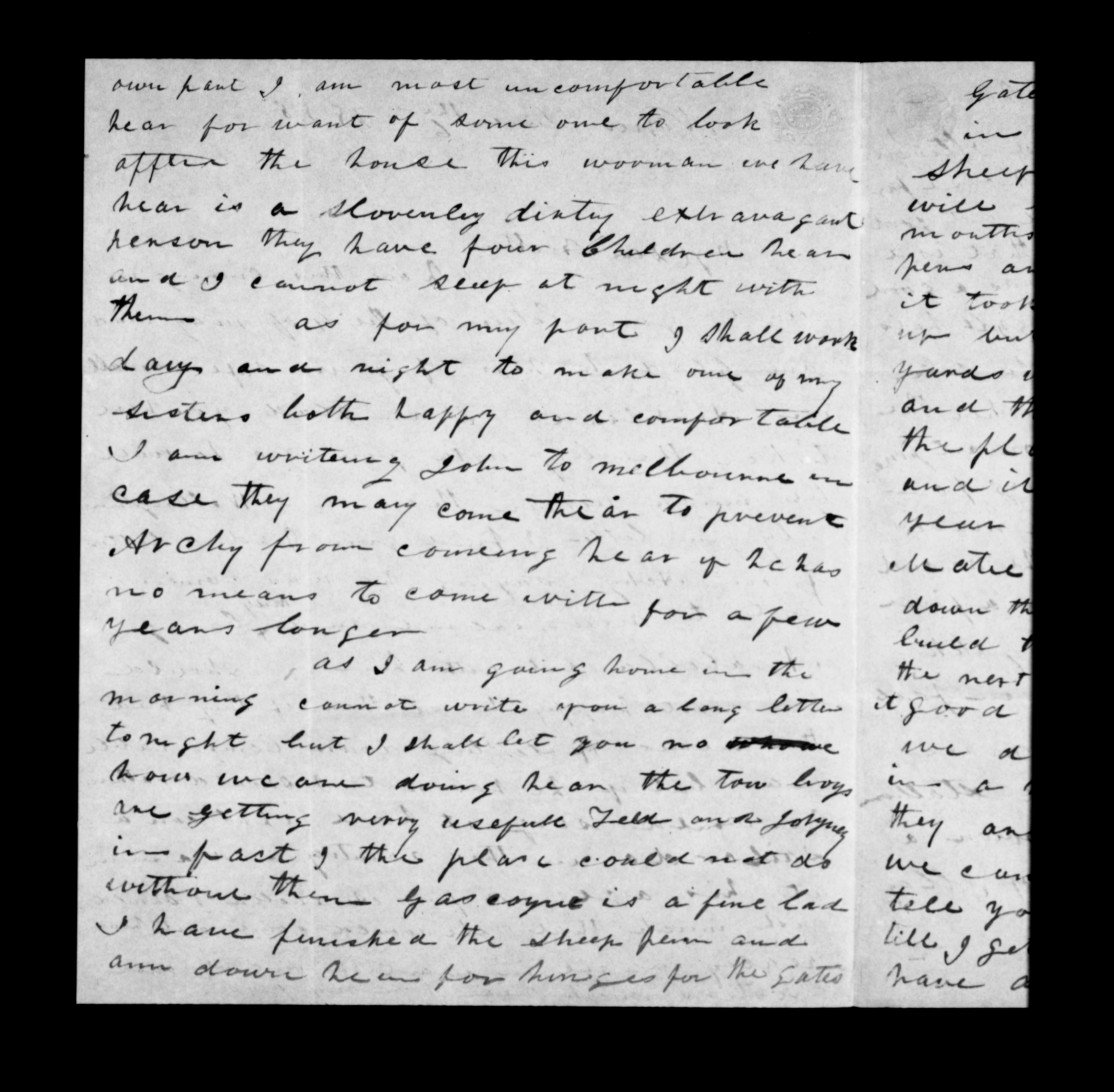 own part I am most uncomfortable
hear for want of some one to look
affter the house this wooman we have
hear is a slovenley dirtey extravagant
person they have four Children hear
and I cannot sleep at night with
them as for my part I shall work
day and night to make one of my
sisters both happy and comfortable
I am writeing John to melbourne in
case they may come theãr to prevent
Archy from comeing hear if he has
no means to come with for a few
years longer
as I am going home in the
morning cannot write you a long letter
tonight but I shall let you no
how we are doing hear the tow boys
are getting verry usefull and
in fact I the place could not do
without them Gascoyne is a fine lad
I have finished the sheep penn and
am down hear for hinges for the gates
Gate
in
sheep
will
months
pens an
it took
up but
yards
and th
the pl
and it
year
down th
build t
the next
it good
we d
in a
they are
we can
tell yo
till I get
have a